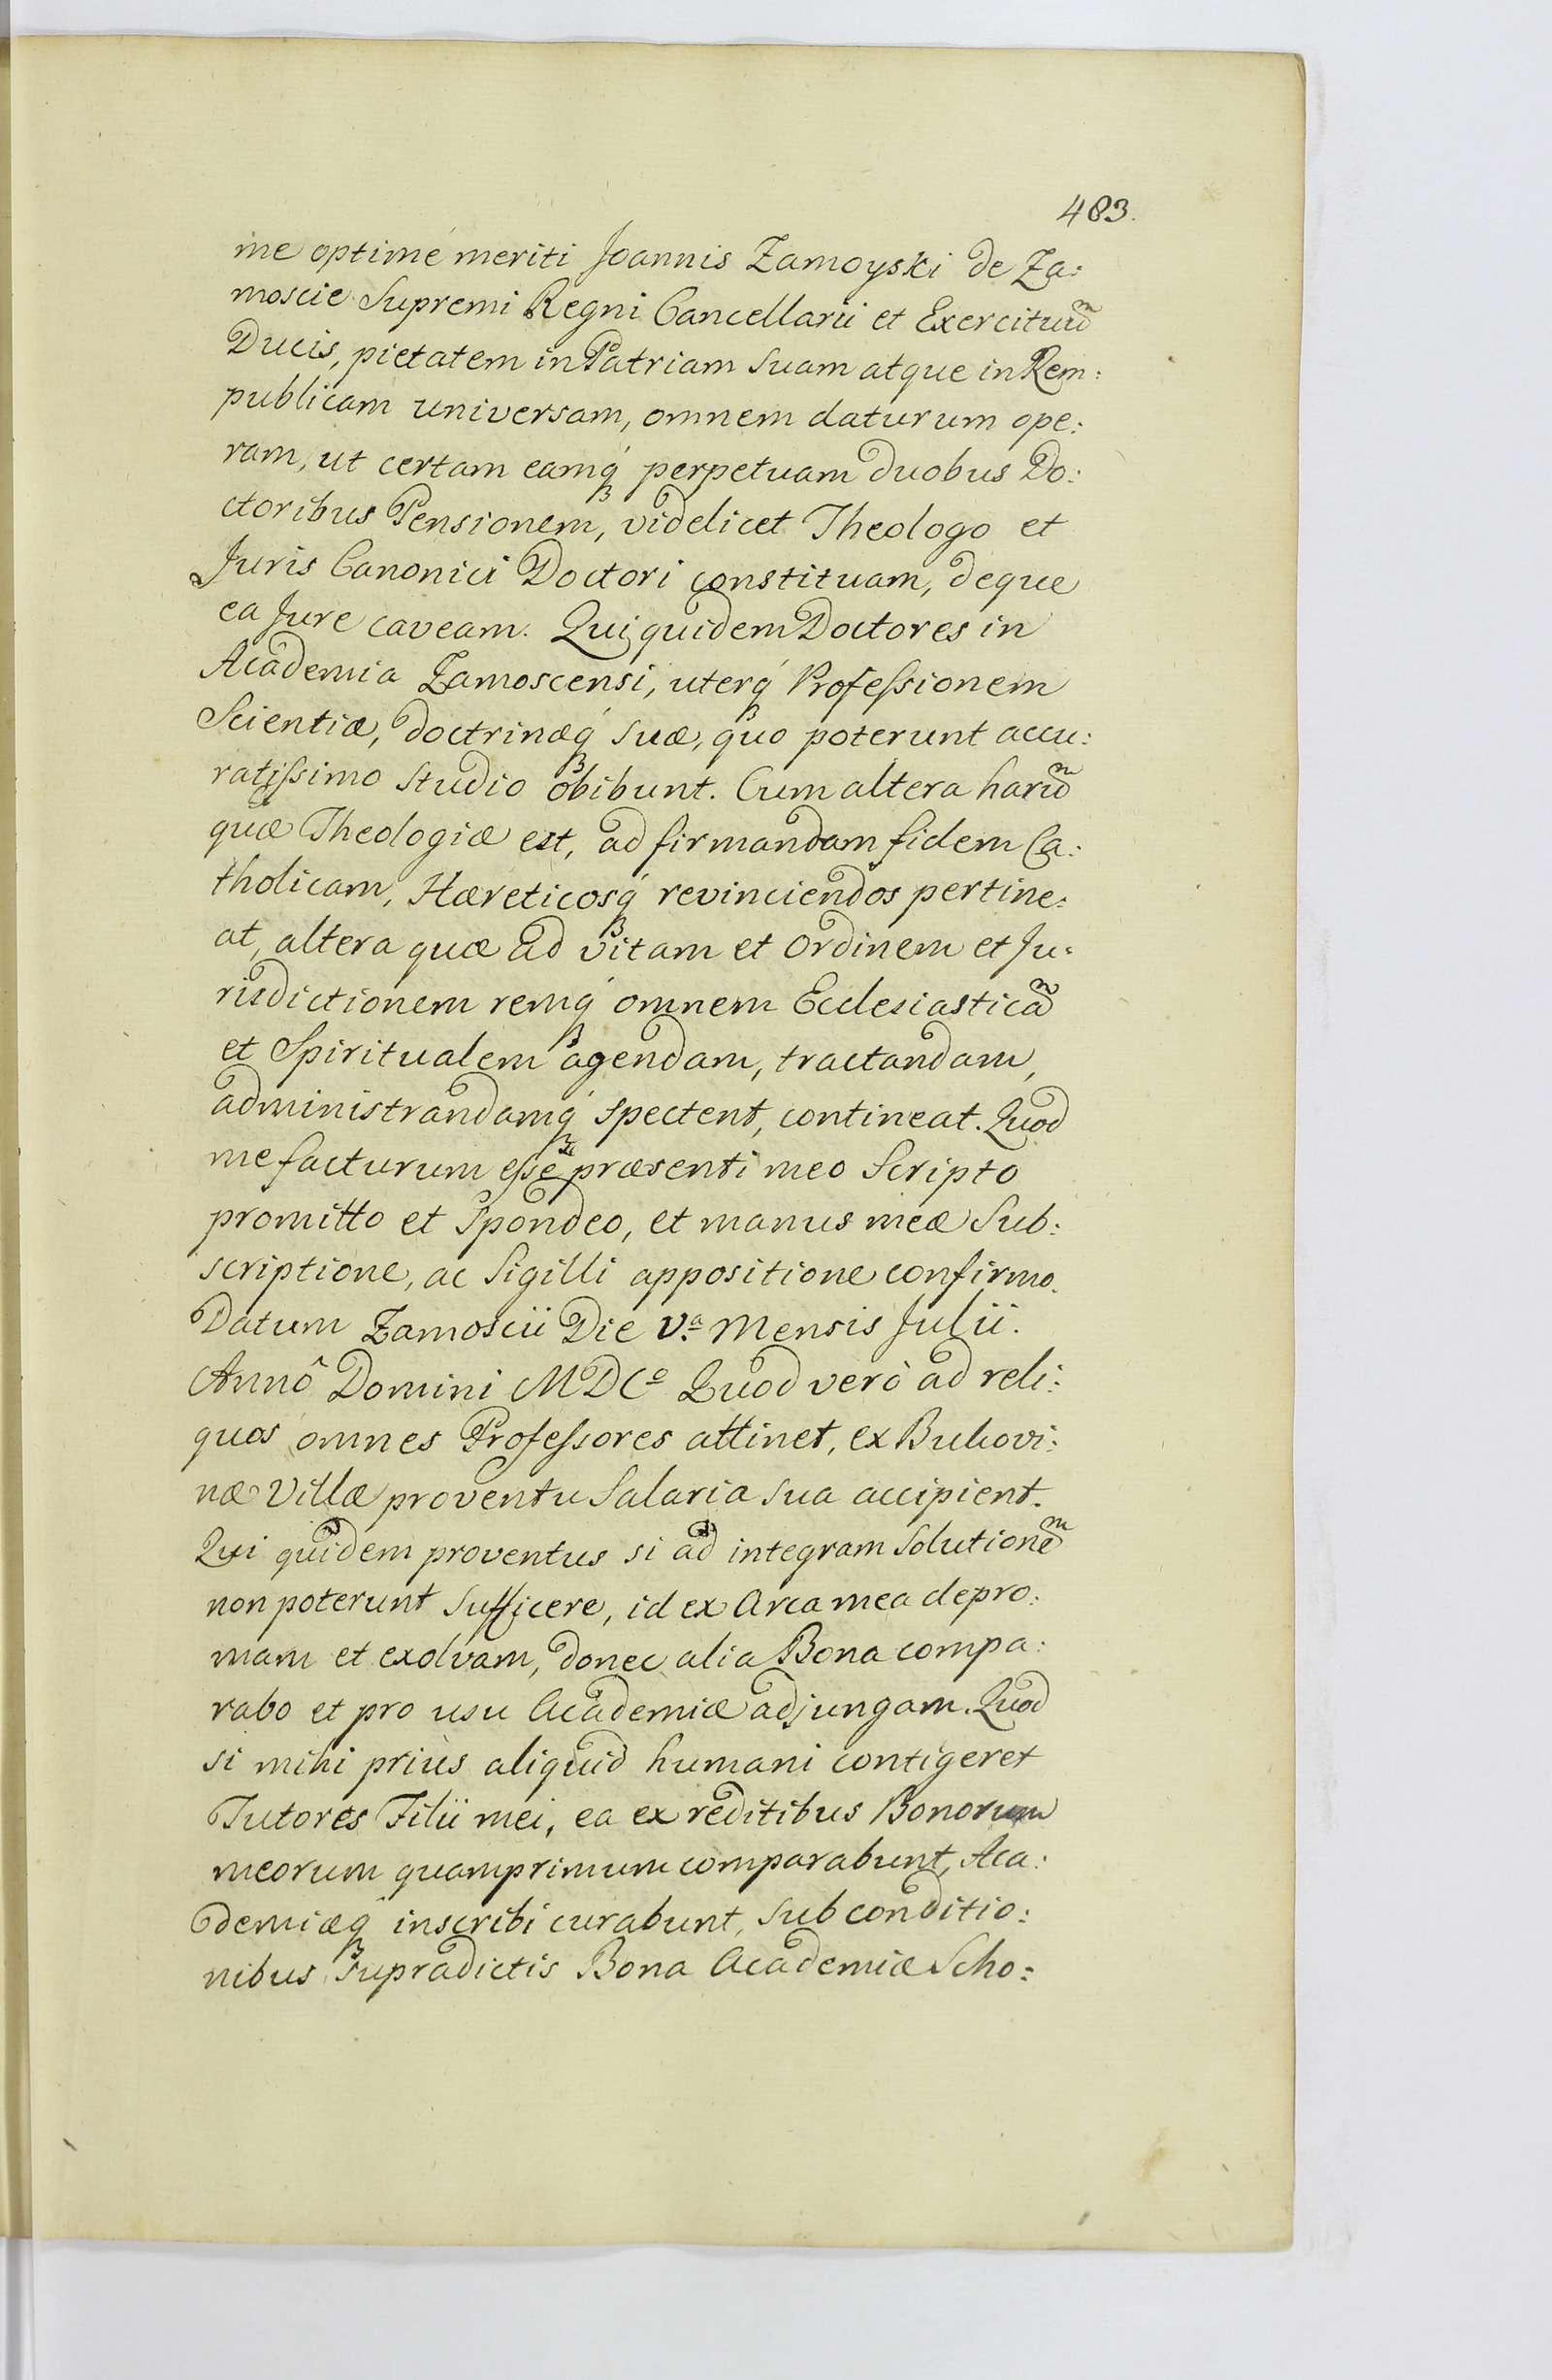 483.
me optimé meriti Joannis Zamoyski de Za:
moscie Supremi Regni Cancellarii et Exercituũ
Ducis, pietatem in Patriam suam atque in Rem:
publicam universam, omnem daturum ope:
ram, ut certam eamq́ꝫ perpetuam duobus Do:
ctoribus Pensionem, videlicet Theologo et
Juris Canonici Doctori constituam, deque
ea Jure caveam. Qui quidem Doctores in
Academia Zamoscensi, uterq́ꝫ Profeſsionem
Scientiæ, doctrinæq́ꝫ suæ, quo poterunt accu:
ratiſsimo studio obibunt. Cum altera harũ
quæ Theologiæ est, ad firmandam fidem Ca:
tholicam, Hæreticosq́ꝫ revinciendos pertine:
at, altera quæ ad vitam et ordinem et Ju:
risdictionem remq́ꝫ omnem Ecclesiasticã
et Spiritualem agendam, tractandam,
administrandamq́ꝫ spectent, contineat. Quod
me facturum eſse præsenti meo Scripto
promitto et spondeo, et manus meæ Sub:
scriptione, ac Sigilli appositione confirmo.
Datum Zamoscii Die V.ª Mensis Julii.
Annô Domini MDCº Quod verò ad reli:
quos omnes Profeſsores attinet, ex Bukovi:
næ Villæ proventu Salaria sua accipient.
Qui quidem proventus si ad integram solutionẽ
non poterunt sufficere, id ex Arca mea depro:
mam et exolvam, donec alia Bona compa:
rabo et pro usu Academiæ adjungam. Quod
si mihi priùs aliquid humani contigeret
Tutores Filii mei, ea ex reditibus Bonorum
meorum quamprimum comparabunt, Aca:
demiæq́ꝫ inscribi curabunt, sub conditio:
nibus supradictis Bona Academiæ Scho: